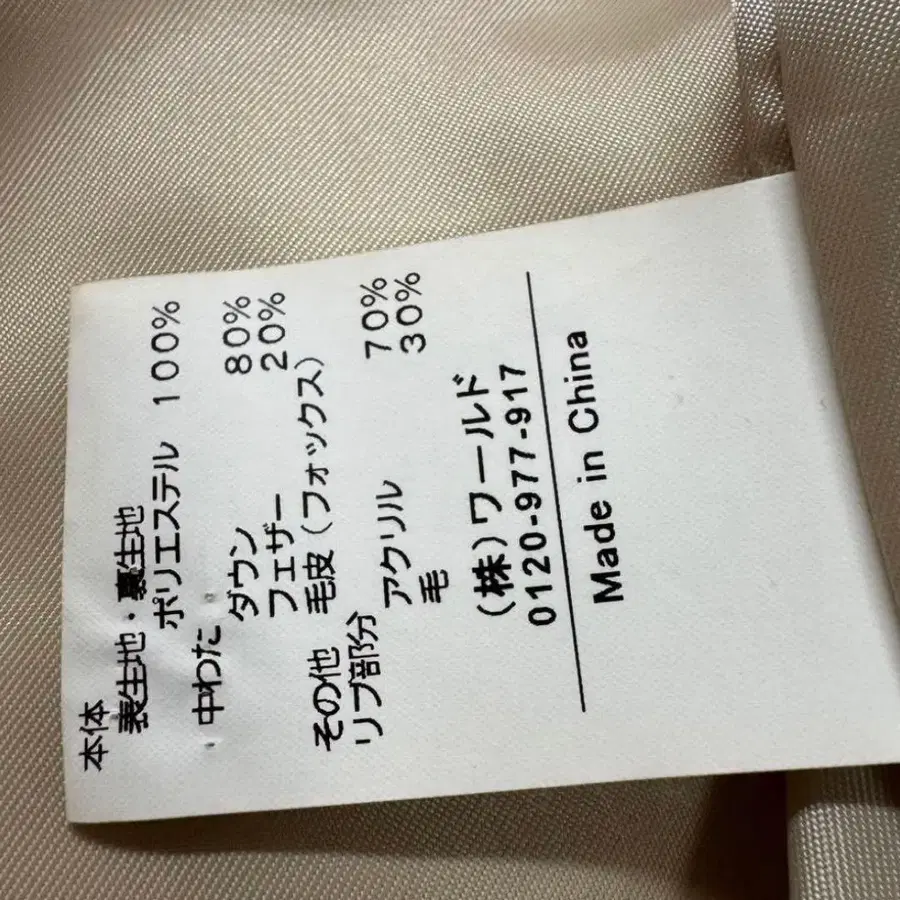 本体
表生地・裏生地
ポリエステル 100%
中わた
ダウン 80%
フェザー 20%
その他 毛皮(フォックス)
リブ部分
アクリル 70%
毛 30%
(株)ワールド
0120-977-917
Made in China